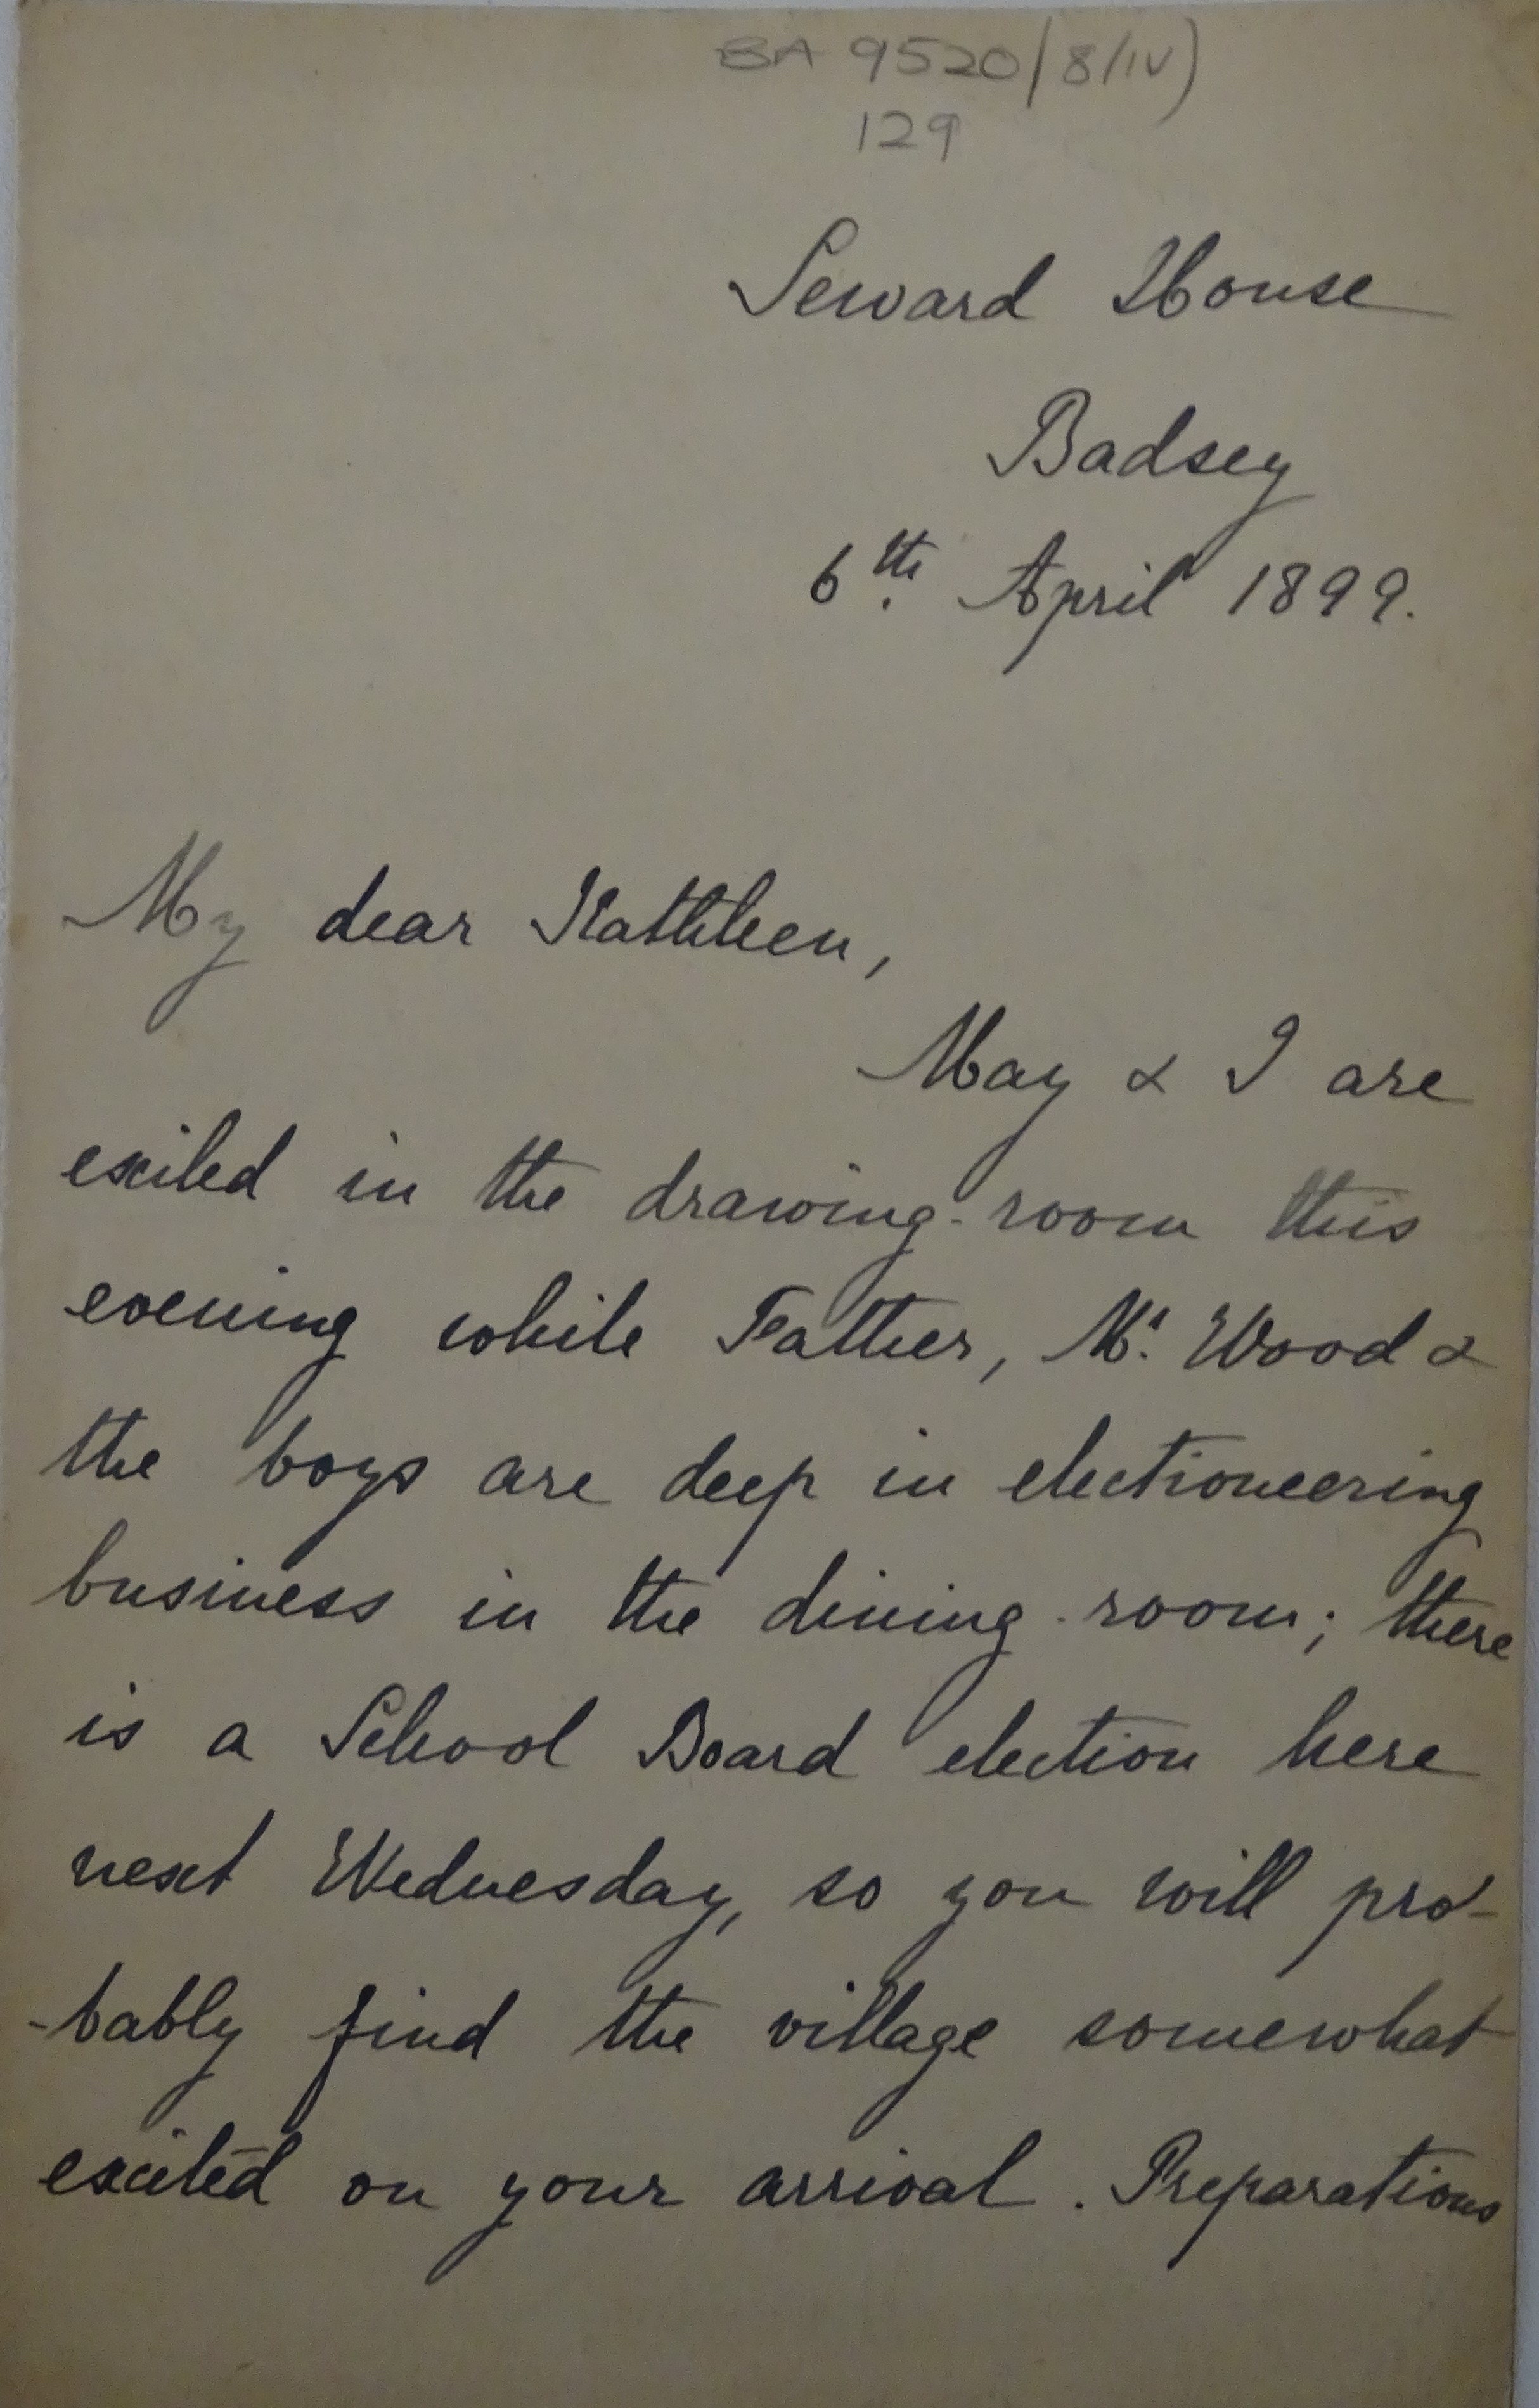 BA 9520/8/iv)
129
Seward House
Badsey
6th. April 1899.
My dear Kathleen,
May & I are
exiled in the drawing-room this
evening while Father, Mr. Wood &
the boys are deep in electioneering
business in the dining-room; there
is a School Board election here
next Wednesday, so you will pro-
-bably find the village somewhat
excited on your arrival. Preparations